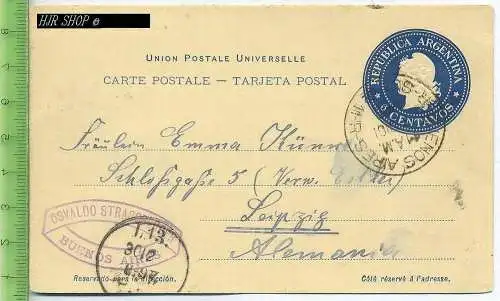 HJR SHOP ©
UNION POSTALE UNIVERSELLE
CARTE POSTALE — TARJETA POSTAL
REPUBLICA ARGENTINA
6 CENTAVOS
Fräulein Emma
Schloßgaße 5 (Verw.
Leipzig
Alemania
OSVALDO
BUENOS
Reservado para la dirección.
Côté réservé à l'adresse.